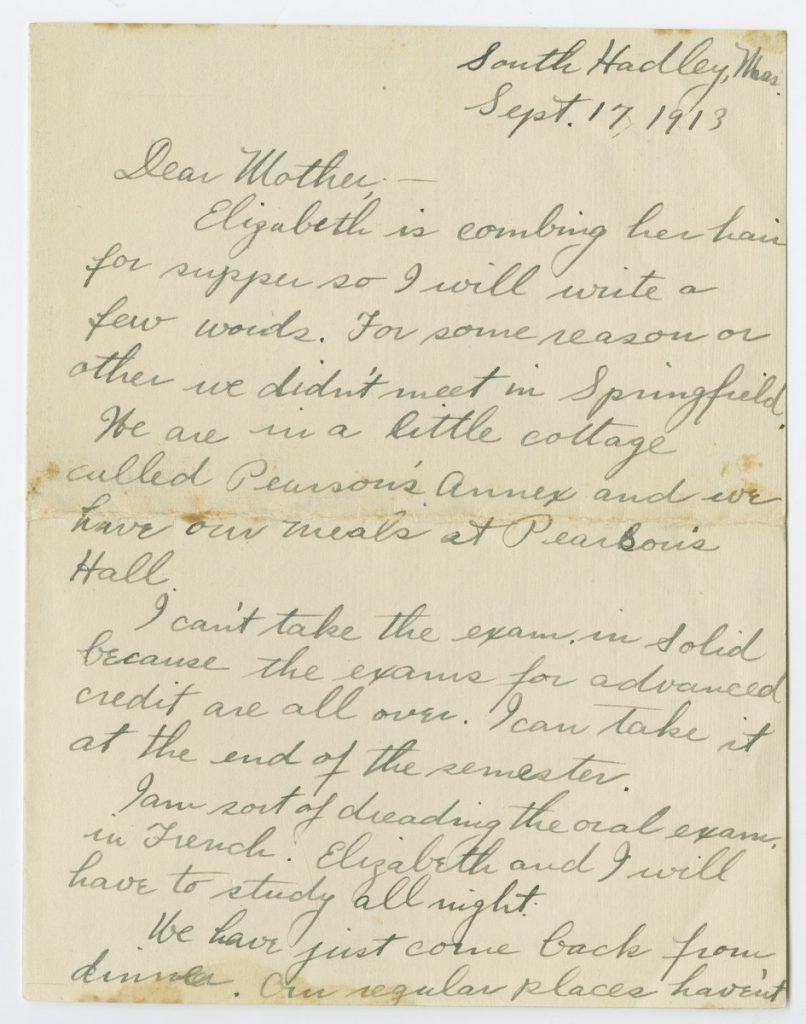 South Hadley, Mas.
Sept. 17, 1913
Dear Mother, —
Elizabeth is combing her hair
for supper so I will write a
few words. For some reason or
other we didn't meet in Springfield.
We are in a little cottage
called Pearson's Annex and we
have our meals at Pearson's
Hall.
I can't take the exam. in Solid
because the exams for advanced
credit are all over. I can take it
at the end of the semester.
I am sort of dreading the oral exam.
in French. Elizabeth and I will
have to study all night.
We have just come back from
dinner. Our regular places haven't